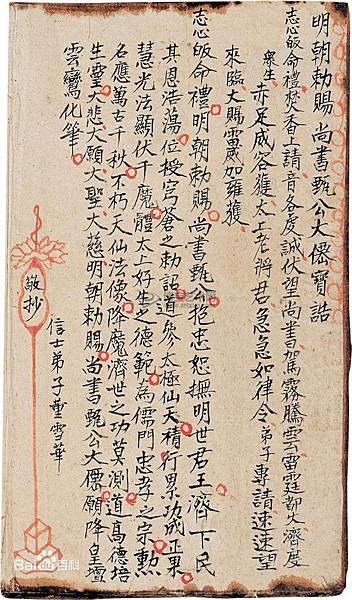 明朝勅賜 尚書甄公大僊寶誥
志心皈命禮焚香上請音各處誠伏望尚書駕霧騰雲雷霆都火濟度
衆生 赤足威容獲太上老將君急急如律令弟子專請速速望
來臨大賜雷威加雍護
志心皈命禮明朝勅賜 尚書甄公抱忠恕撫明世君王濟下民
其恩浩蕩位授穹蒼之勅詔道參太極仙天積行累功成正果
慧光法顯伏千魔體太上好生之德範為儒門忠孝之宗勳
名應萬古千秋不朽天仙法像降魔濟世之功莫測道高德培
生靈大悲大願大聖大慈明朝勅賜 尚書甄公大僊願降皇壇
雲鸞化筆
敬抄
信士弟子董雪華
Baidu百科